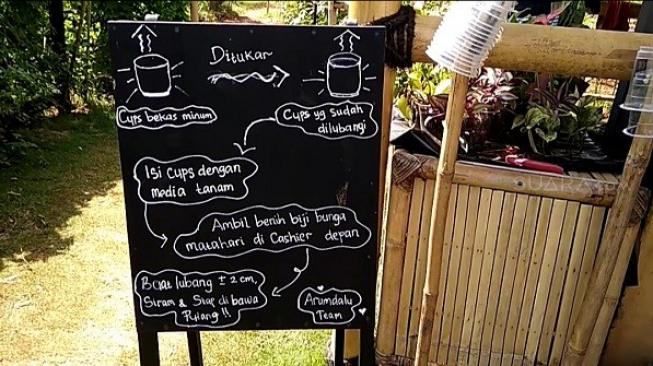 Ditukar
Cups bekas minum
Cups yg sudah
dilubangi
Isi cups dengan
media tanam
Ambil benih biji bunga
matahari di Cashier depan
Buat lubang ± 2 cm,
Siram & Siap di bawa
Pulang !!
Arumdalu
Team